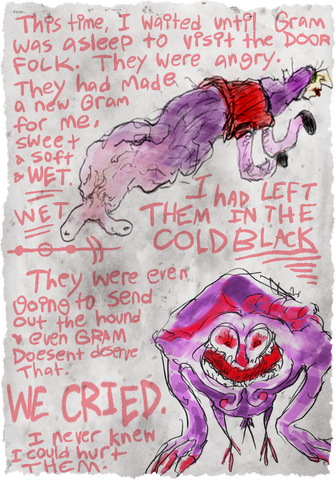 This time, I waited until Gram
was asleep to visit the DOOR
FOLK. They were angry.
They had made
a new Gram
for me,
sweet
& soft
& WET.
WET
I HAD LEFT
THEM IN THE
COLD BLACK
They were even
going to send
out the hound
& even GRAM
Doesent deserve
That.
WE CRIED.
I never knew
I could hurt
THEM.